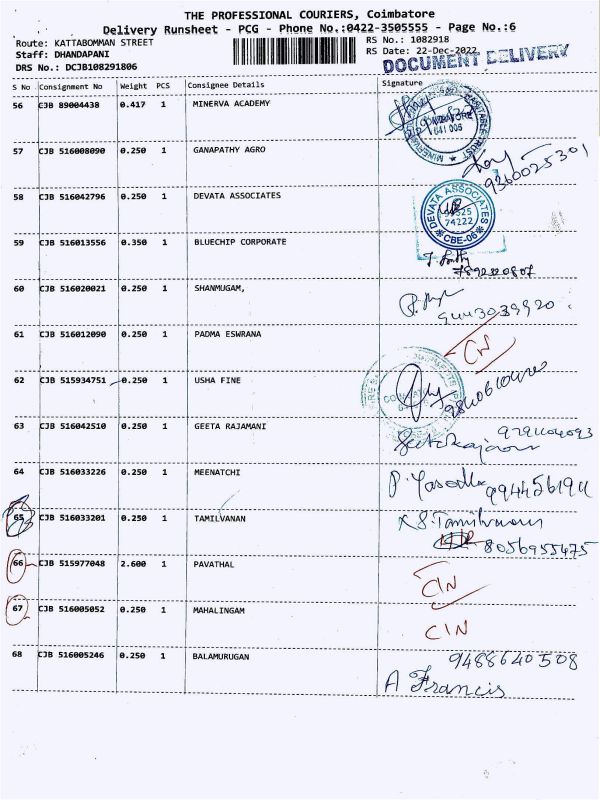 THE PROFESSIONAL COURIERS, Coimbatore
Delivery Runsheet - PCG - Phone No.:0422-3505555 - Page No.:6
Route: KATTABOMMAN STREET
RS No.: 1082918
Staff: DHANDAPANI
RS Date: 22-Dec-2022
DRS No.: DCJB108291806
DOCUMENT DELIVERY
S No Consignment No Weight PCS Consignee Details Signature
56 CJB 89004438 0.417 1 MINERVA ACADEMY
641 006
57 CJB 516008090 0.250 1 GANAPATHY AGRO
9360025301
58 CJB 516042796 0.250 1 DEVATA ASSOCIATES
DEVATA ASSOCIATES
74222
CBE-06
59 CJB 516013556 0.350 1 BLUECHIP CORPORATE
60 CJB 516020021 0.250 1 SHANMUGAM,
9443039920
61 CJB 516012090 0.250 1 PADMA ESWRANA
CIN
62 CJB 515934751 0.250 1 USHA FINE
63 CJB 516042510 0.250 1 GEETA RAJAMANI
64 CJB 516033226 0.250 1 MEENATCHI
P. Yasodha
65 CJB 516033201 0.250 1 TAMILVANAN
8056955475
66 CJB 515977048 2.600 1 PAVATHAL
CIN
67 CJB 516005052 0.250 1 MAHALINGAM
CIN
68 CJB 516005246 0.250 1 BALAMURUGAN
9488640508
A Francis